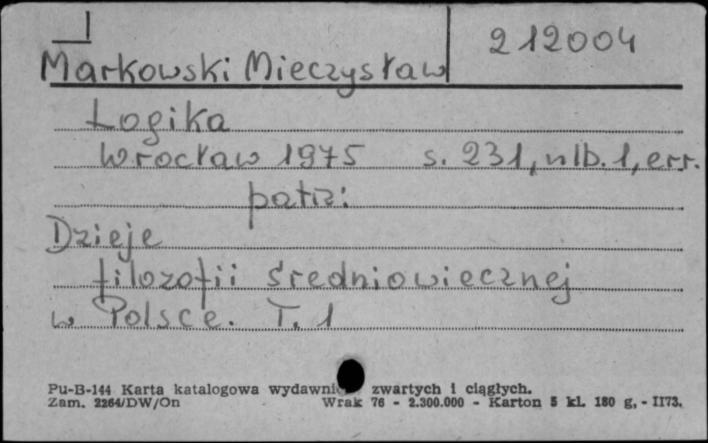 212004
Markowski Mieczysław
Logika
Wrocław 1975 s. 231, nlb. 1, err.
patrz:
Dzieje
filozofii średniowiecznej
w Polsce. T. 1
Pu-B-144 Karta katalogowa zwartych i ciągłych.
Zam. 2264/DW/On Wrak 76 - 2.300.000 - Karton 5 kl. 180 g, - II73.